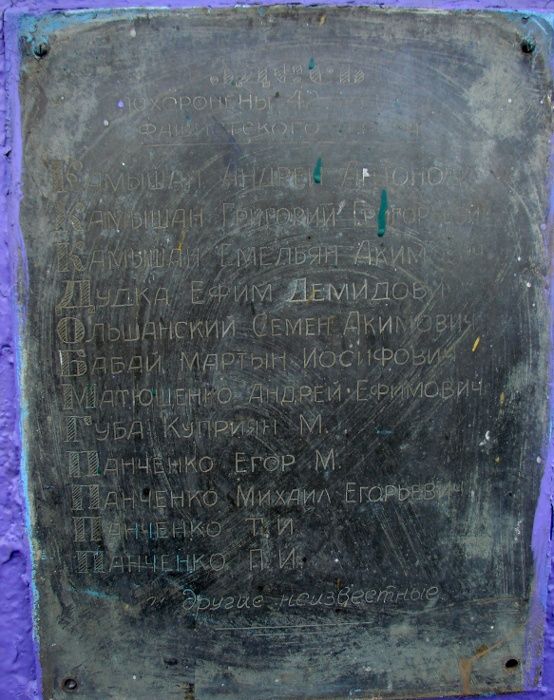 похоронены 42
фашистского
Камышан Андрей
Камышан Григорий Григорьевич
Камышан Емельян Акимович
Дудка Ефим Демидович
Ольшанский Семен Акимович
Бабай Мартын Иосифович
Матюшенко Андрей Ефимович
Губа Куприян М.
Панченко Егор М.
Панченко Михаил Егорьевич
Панченко Т. И.
Панченко П. И.
и другие неизвестные